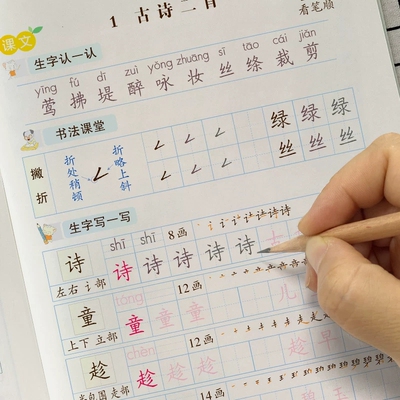 1 古诗二首
看笔顺
课文
生字认一认
yīng fú dī zuì yǒng zhuāng sī tāo cái jiǎn
莺 拂 堤 醉 咏 妆 丝 绦 裁 剪
书法课堂
撇折
折处稍顿
折略上斜
绿 绿 绿
丝 丝 丝
生字写一写
shī shī 8画
诗 诗 诗 诗 诗 诗 古
左右 讠部
tóng 12画
童 童 童 童 儿
上下 立部
chèn 12画
趁 趁 趁 趁 早
半包围 走部
14画
碧 玉